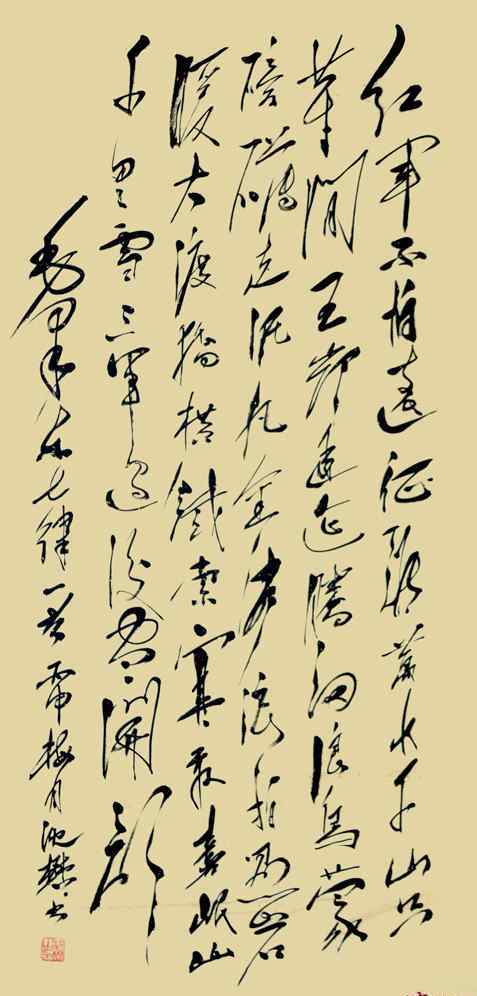 红軍不怕遠征難萬水千山只
等閒五嶺逶迤騰細浪烏蒙
磅礴走泥丸金沙浪拍雲崖
暖大渡橋橫鐵索寒更喜岷山
千里雪三軍過後盡開顏
七律一首 梅月